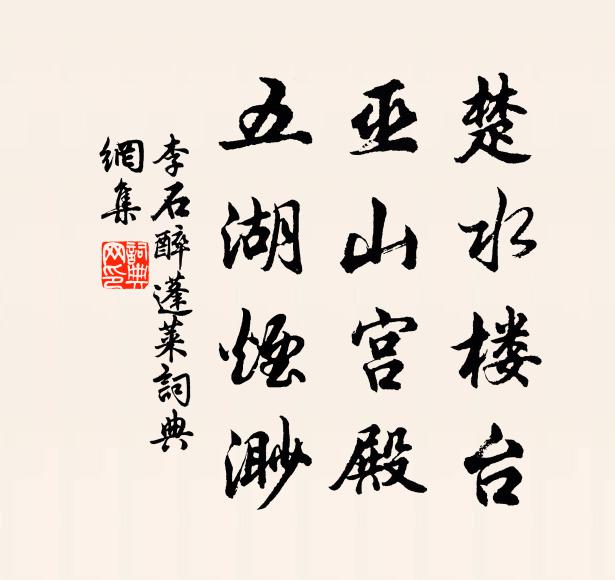 楚水楼台
巫山宫殿
五湖煙渺
李石醉蓬莱詞典
網集
詞典
网印